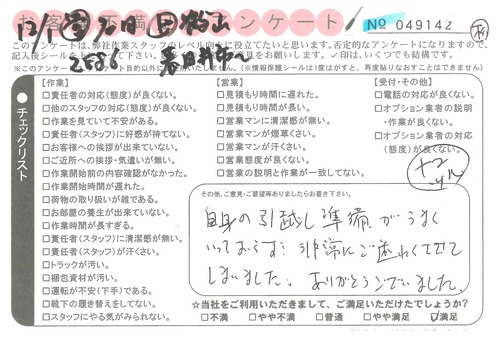 お客様不満足アンケート
№ 049142
このアンケートは、弊社作業スタッフのレベル向上に役立てたいと思います。否定的なアンケートになりますので、
✓印は、いくつでも結構です。
(※情報保護シールは1度はがすと、再度貼りなおすことはできません)
チェックリスト
【作業】
□責任者の対応(態度)が良くない。
□他のスタッフの対応(態度)が良くない。
□作業を見ていて不安がある。
□責任者(スタッフ)に好感が持てない。
□お客様への挨拶が出来ていない。
□ご近所への挨拶・気遣いが無い。
□作業開始前の内容確認がなかった。
□作業開始時間が遅れた。
□荷物の取り扱いが雑である。
□お部屋の養生が出来ていない。
□作業時間が長すぎる。
□責任者(スタッフ)に清潔感が無い。
□責任者(スタッフ)が汗くさい。
□トラックが汚い。
□梱包資材が汚い。
□運転が不安(下手)である。
□靴下の履き替えをしてない。
□スタッフにやる気がみられない。
【営業】
□見積もり時間に遅れた。
□見積もり時間が長い。
□営業マンに清潔感が無い。
□営業マンが煙草くさい。
□営業マンが汗くさい。
□営業態度が良くない。
□営業の説明と作業が一致してない。
【受付・その他】
□電話の対応が良くない。
□オプション業者の説明
・作業が良くない。
□オプション業者の対応
(態度)が良くない。
その他、ご意見・ご要望等ありましたらお書き下さい。
自身の引越し準備がうまく
いっておらず、非常にご迷わくさせて
しまいました。ありがとうございました。
☆当社をご利用いただきまして、ご満足いただけたでしょうか?
□不満 □やや不満 □普通 □やや満足 ☑満足